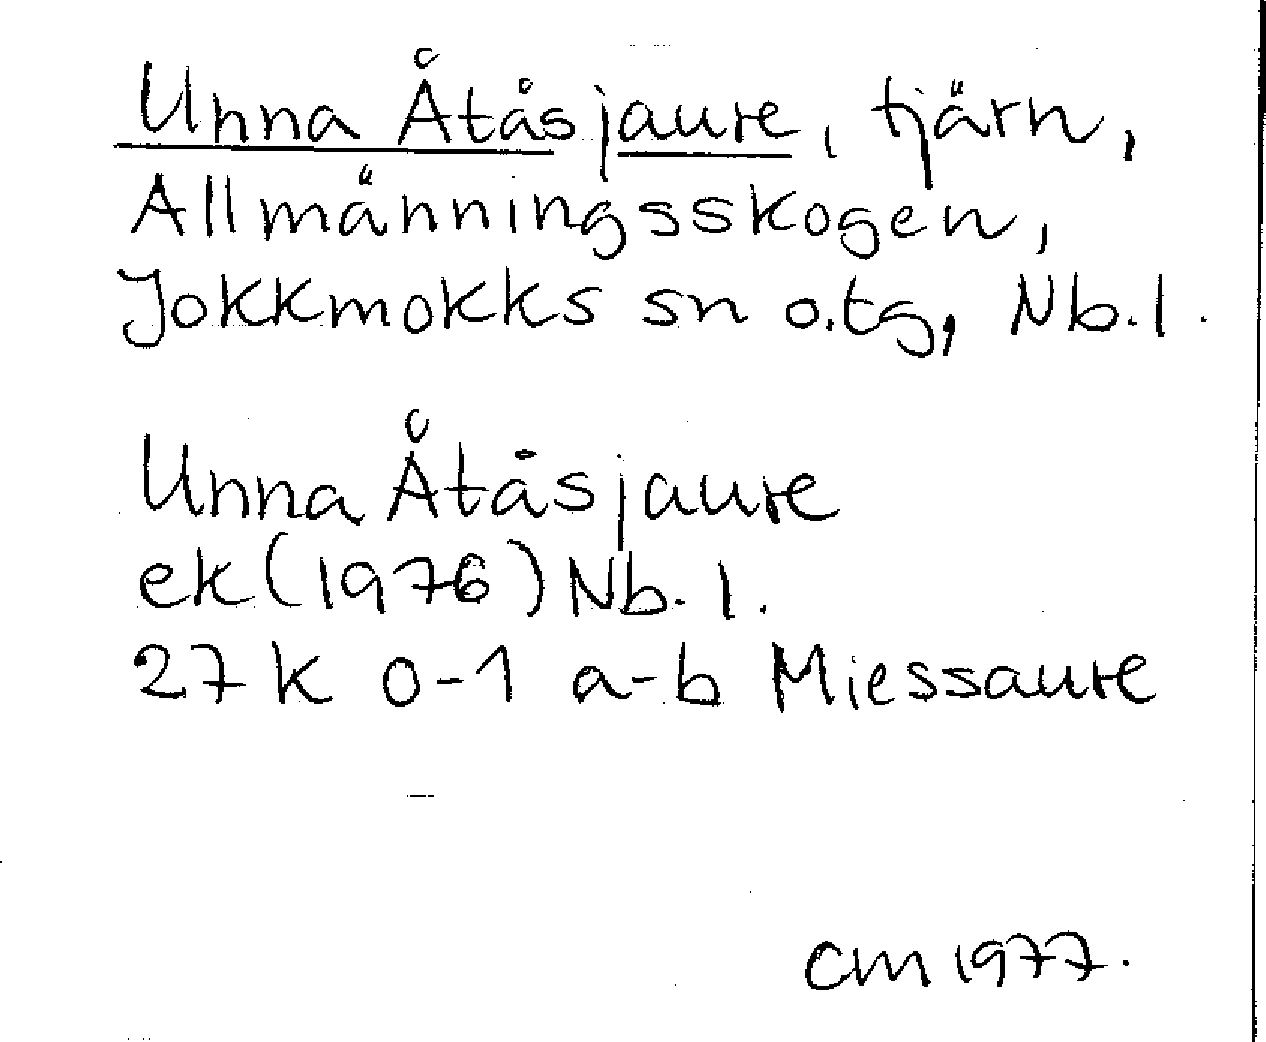 Unna Åtåsjaure, tjärn,
Allmänningsskogen,
Jokkmokks sn o.tg, Nb.l.
Unna Åtåsjaure
ek (1976) Nb.l.
27 K 0-1 a-b Miessaure
CM 1977.